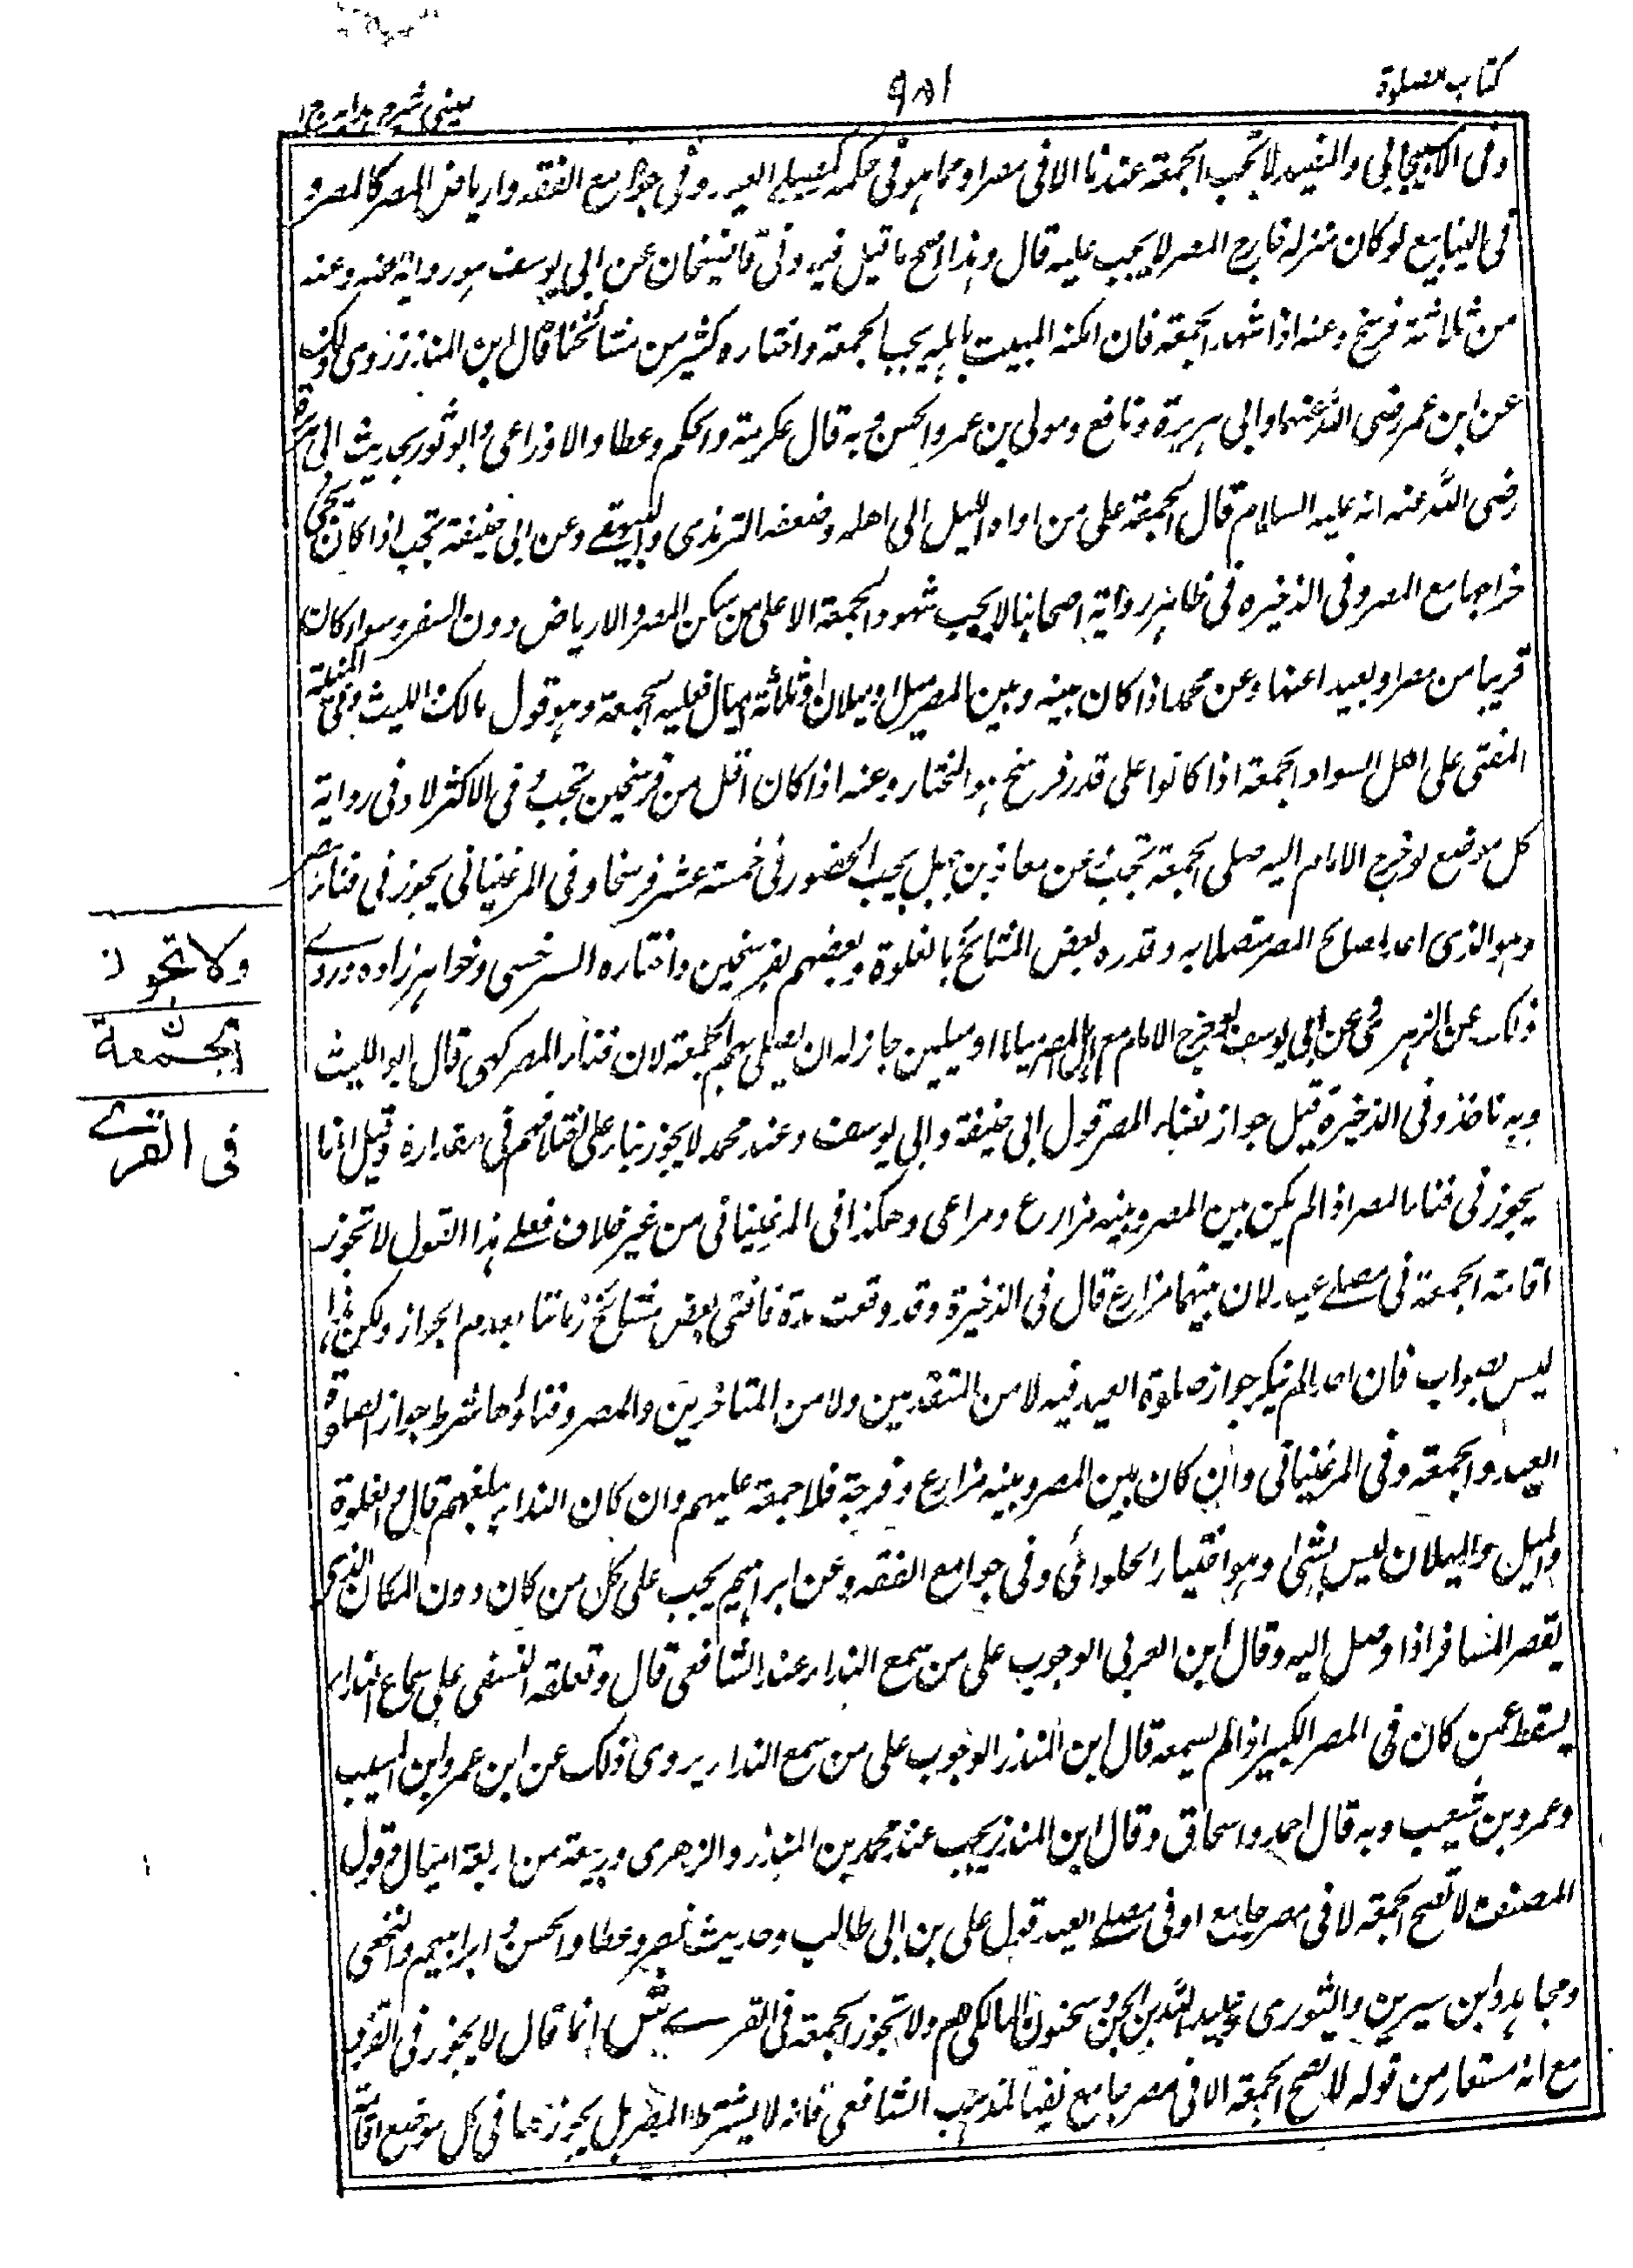 كتاب الصلوة
٩٨١
عینی شرح هدایه ج١
وفي الاسبيجابي والمفيد لا تجب الجمعة عندنا الا في مصر او مما هو في حكمه كمصلى العيد وفي جوامع الفقه وارباض المصر كالمصر و
في الينابيع لو كان منزله خارج المصر لا يجب عليه قال وهذا اصح ما قيل فيه وفي قاضيخان عن ابي يوسف هو رواية عنه وعنه
من ثلاثة فرسخ وعنه اذا شهد الجمعة فان امكنه المبيت باهله يجب الجمعة واختاره كثير من مشائخنا قال ابن المنذر روى ذلك
عن ابن عمر رضى الله عنهما وابي هريرة ونافع ومولى بن عمر والحسن وبه قال عكرمة والحكم وعطا والاوزاعى وابو ثور بحديث ابي هريرة
رضى الله عنه انه عليه السلام قال الجمعة على من اواه الليل الى اهله وضعفه الترمذى والبيهقى وعن ابي حنيفة تجب اذا كان يجئ
خراجها مع المصر وفي الذخيره في ظاهر رواية اصحابنا لا يجب شهود الجمعة الا على من يسكن المصر والارياض دون السفر وسواء كان
قريبا من مصر او بعيدا عنها وعن محمد اذا كان بينه وبين المصر ميل او ميلان او ثلاثة اميال فعليه الجمعة وهو قول مالك والليث وفي منية
المفتى على اهل السواد الجمعة اذا كانوا على قدر فرسخ هو المختار وعنه اذا كان اقل من فرسخين تجب وفي الاكثر لا وفي رواية
كل موضع لو خرج الامام اليه صلى الجمعة تجب وعن معاذ بن جبل يجب الحضور في خمسة عشر فرسخا وفي المرغينانى يجوز في فناء مصر
وهو الذى اعد لمصالح المصر متصلا به وقدره بعض المشائخ بالغلوة وبعضهم بفرسخين واختاره السرخسى وخواهر زاده وروى
ذلك عن الزهرى وعن ابي يوسف لو خرج الامام مع اهل المصر ميلا او ميلين جاز له ان يصلى بهم الجمعة لان فناء المصر كهى قال ابو الليث
وبه ناخذ وفي الذخيرة قيل جواز بفناء المصر قول ابي حنيفة وابي يوسف وعند محمد لا يجوز بناء على اختلافهم في مقداره وقيل انما
يجوز في فناء المصر اذا لم يكن بين المصر وبينه مزارع ومراعى وهكذا في المرغينانى من غير خلاف فعلى هذا القول لا تجوز
اقامة الجمعة في مصلى عيد لان بينهما مزارع قال في الذخيرة وقد وقعت مدة فافتى بعض مشائخ زماننا بعدم الجواز ولكن هذا
ليس بصواب فان احدا لم ينكر جواز صلوة العيد فيه لا من المتقدمين ولا من المتاخرين والمصر وفناؤها شرط جواز الصلوة
العيد والجمعة وفي المرغينانى وان كان بين المصر وبينه مزارع وفرجة فلا جمعة عليهم وان كان النداء يبلغهم قال والغلوة
والميل والميلان ليس بشئ وهو اختيار الحلوائى وفي جوامع الفقه وعن ابراهيم يجب على كل من كان دون المكان الذى
يقصر المسافر اذا وصل اليه وقال ابن العربى الوجوب على من سمع النداء عند الشافعى قال وتعلقه النسفى على سماع النداء
يسقط عمن كان في المصر الكبير اذا لم يسمعه قال ابن المنذر الوجوب على من سمع النداء يروى ذلك عن ابن عمر وابن المسيب
وعمرو بن شعيب وبه قال احمد واسحاق وقال ابن المنذر يجب عند محمد بن المنذر والزهرى وربيعة من اربعة اميال وقول
المصنف لا تصح الجمعة لا في مصر جامع او في مصلى العيد قول على بن ابي طالب وحديث نصر وعطا والحسن وابراهيم والنخعى
ومجاهد وابن سيرين والثورى وعبيد الله بن الحسن وسحنون المالكى هم ولا تجوز الجمعة في القرى ش انما قال لا يجوز في القرى
مع انه مستفاد من قوله لا تصح الجمعة الا في مصر جامع نفيا لمذهب الشافعى فانه لا يشترط المصر بل يجوزها في كل موضع اقامة
ولا تجوز
الجمعة
في القرى